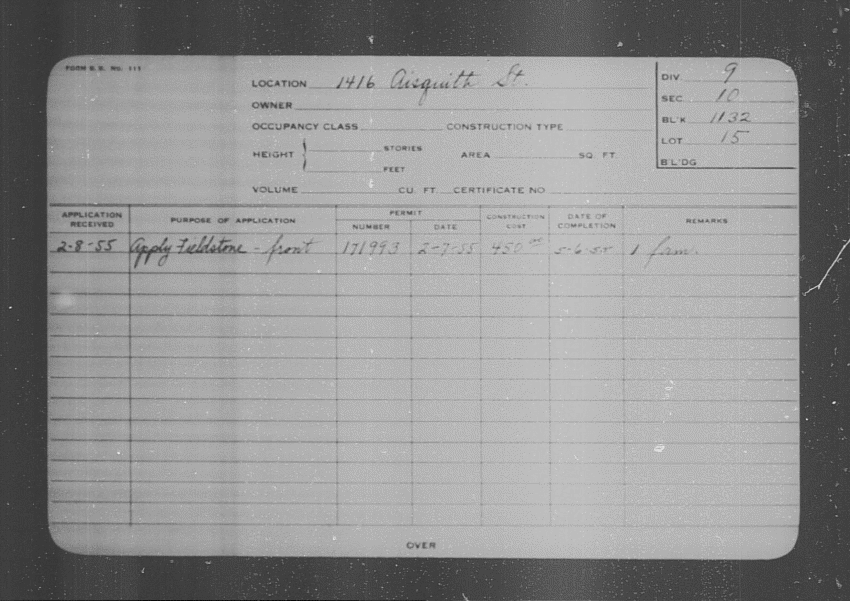 FORM B. E. No. 111
LOCATION 1416 Aisquith St.
DIV. 9
OWNER
SEC. 10
OCCUPANCY CLASS CONSTRUCTION TYPE
BL'K 1132
LOT 15
HEIGHT STORIES AREA SQ. FT.
FEET
B'L'DG
VOLUME CU. FT. CERTIFICATE NO
APPLICATION RECEIVED PURPOSE OF APPLICATION PERMIT NUMBER DATE CONSTRUCTION COST DATE OF COMPLETION REMARKS
2-8-55 Apply Fieldstone - front 171993 2-7-55 450 00 5-6-55 1 fam.
OVER